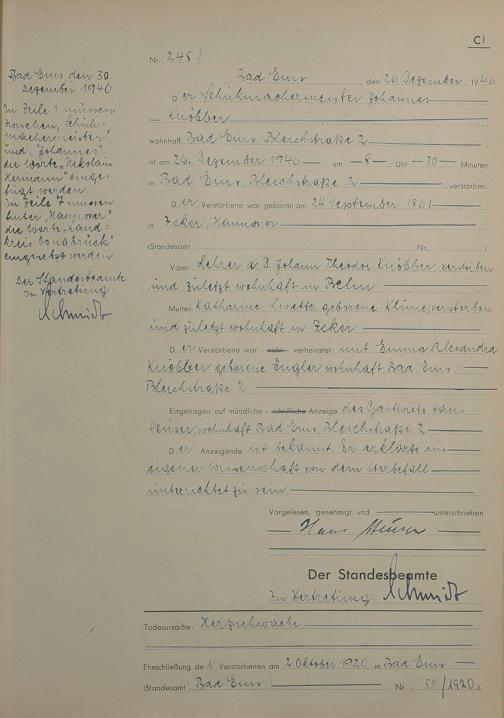 C1
Nr. 245
Bad Ems, den 26. Dezember 1946
Der Schuhmachermeister Johannes
Knöbber
wohnhaft Bad Ems, Bleichstraße 2
ist am 26. Dezember 1946 um 8 Uhr 30 Minuten
in Bad Ems, Bleichstraße 2 verstorben.
Der Verstorbene war geboren am 24. September 1861
in Icker/Hannover
(Standesamt Nr. )
Vater: Lehrer a. D. Johann Theodor Knöbber, verstorben
und zuletzt wohnhaft in Belm
Mutter: Katharine Lisette geborene Klüne, verstorben
und zuletzt wohnhaft in Icker
Der Verstorbene war – nicht – verheiratet mit Emma Alexandra
Knöbber geborene Engler wohnhaft Bad Ems
Bleichstraße 2
Eingetragen auf mündliche – schriftliche – Anzeige des Gastwirts Hans
wohnhaft Bad Ems, Bleichstraße 2
Der Anzeigende ist bekannt. Er erklärte aus
eigener Wissenschaft von dem Sterbefall
unterrichtet zu sein
Vorgelesen, genehmigt und unterschrieben
Hans
Der Standesbeamte
In Vertretung: Schmidt
Todesursache: Herzschwäche
Eheschließung de Verstorbenen am 2. Oktober 1920 in Bad Ems
(Standesamt Bad Ems Nr. 58/1920)
Bad Ems, den 30.
Dezember 1946
In Zeile 1 müssen
zwischen „Schuh-
machermeister"
und „Johannes"
die Worte „Nikolaus
Hermann" einge-
fügt werden
In Zeile 7 müssen
hinter „Hannover"
die Worte „Land-
kreis Osnabrück"
eingesetzt werden.
Der Standesbeamte
In Vertretung:
Schmidt